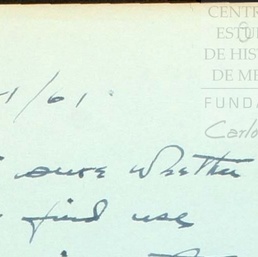 CENTR
ESTU
DE HIS
DE ME
FUNDA
Carlo
1/61
sure whether
find use